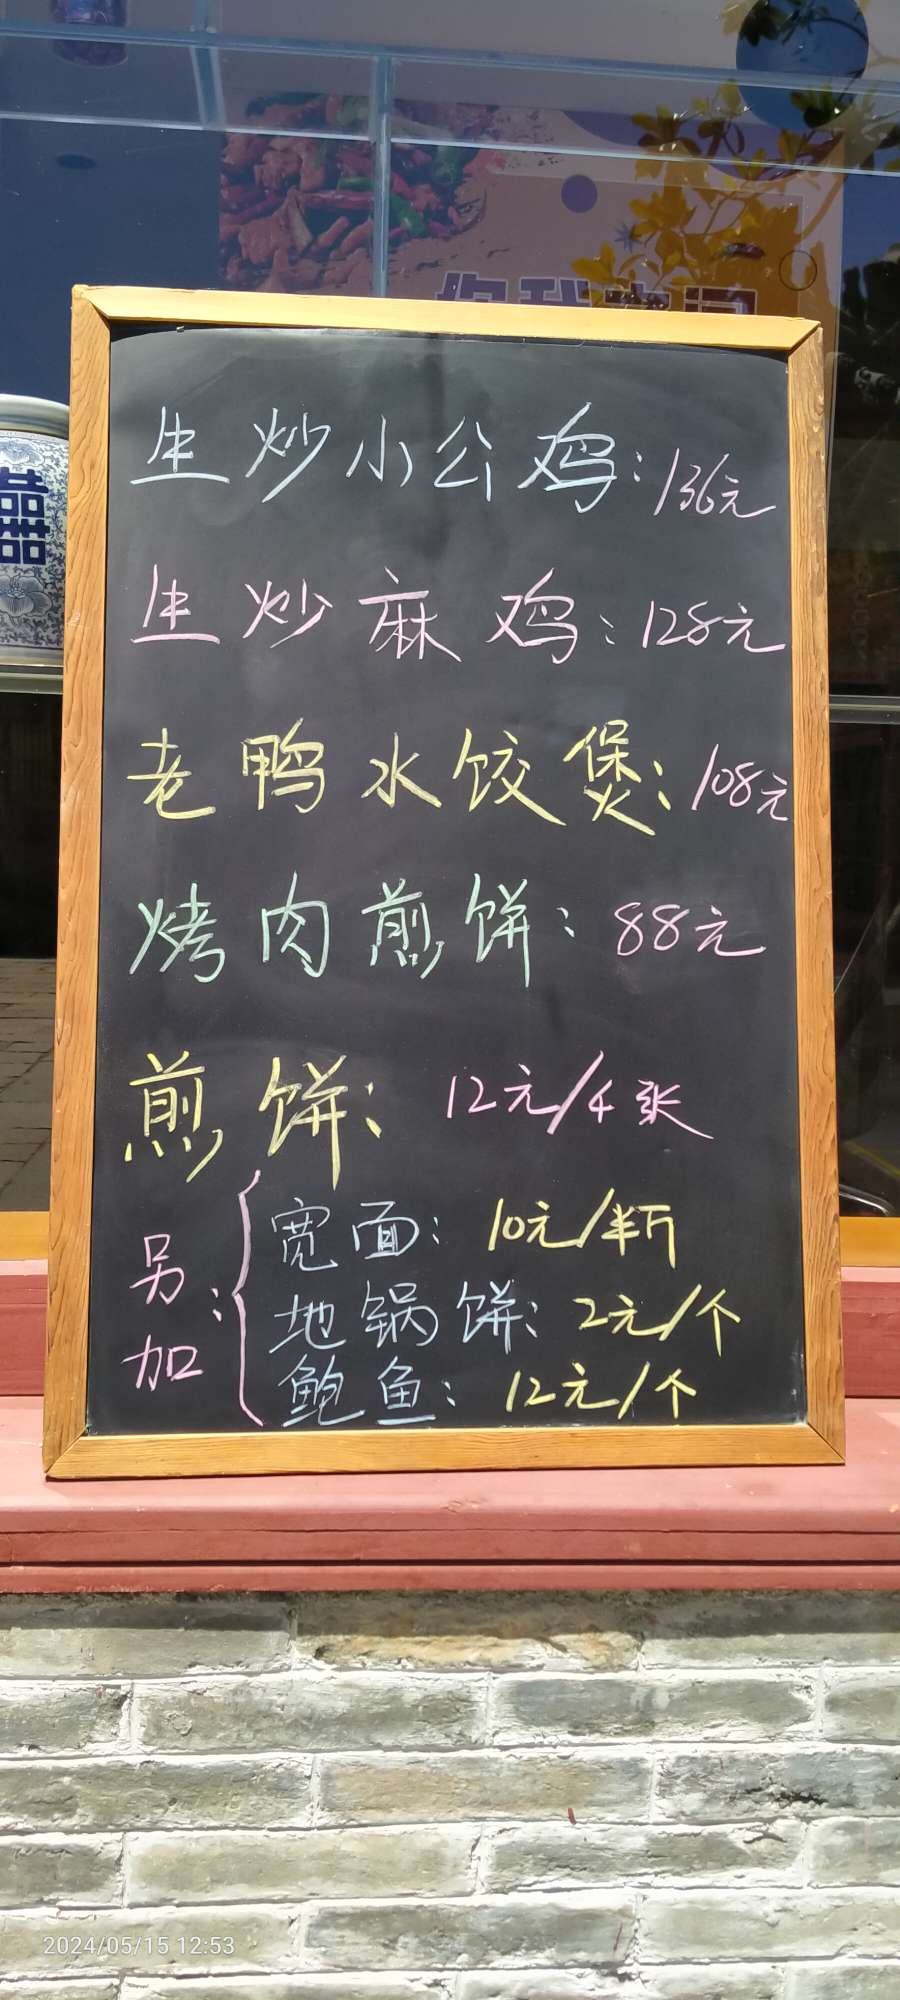 生炒小公鸡：136元
生炒麻鸡：128元
老鸭水饺煲：108元
烤肉煎饼：88元
煎饼：12元/4张
另加：
宽面：10元/半斤
地锅饼：2元/个
鲍鱼：12元/个
2024/05/15 12:53